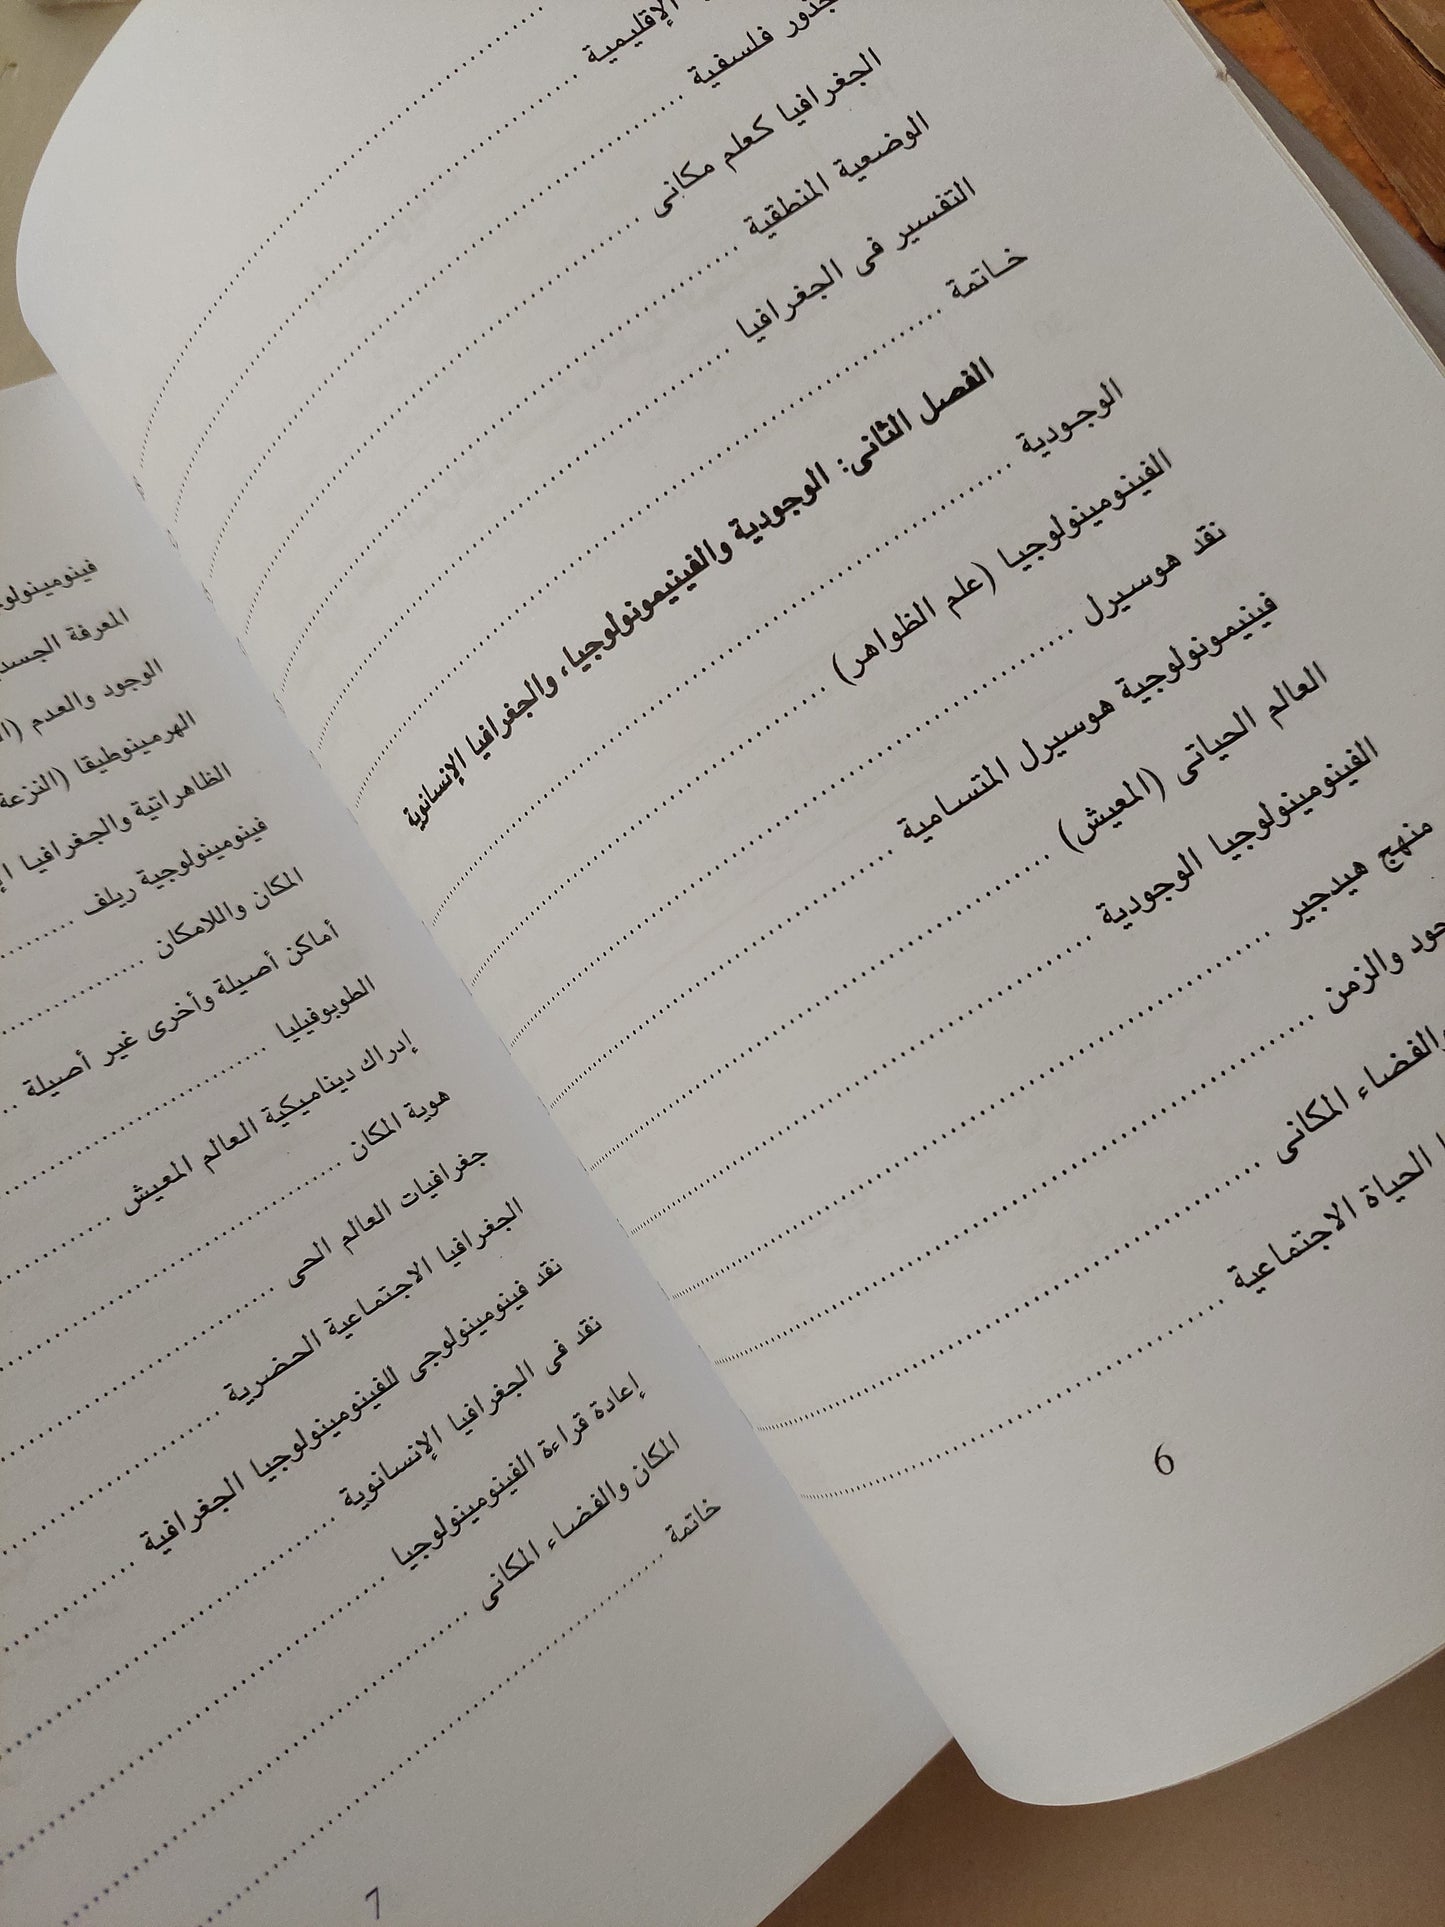 الإقليمية
جذور فلسفية
الجغرافيا كعلم مكانى
الوضعية المنطقية
التفسير فى الجغرافيا
خاتمة
الفصل الثانى: الوجودية والفينيمونولوجيا، والجغرافيا الإنسانوية
الوجودية
الفينومينولوجيا (علم الظواهر)
نقد هوسيرل
فينيمونولوجية هوسيرل المتسامية
العالم الحياتى (المعيش)
الفينومينولوجيا الوجودية
منهج هيدجير
والزمن
والفضاء المكانى
الحياة الاجتماعية
6
المعرفة
الوجود والعدم
الهرمينوطيقا (النزعة
الظاهراتية والجغرافيا
فينومينولوجية ريلف
المكان واللامكان
أماكن أصيلة وأخرى غير أصيلة
الطوبوفيليا
إدراك ديناميكية العالم المعيش
هوية المكان
جغرافيات العالم الحى
الجغرافيا الاجتماعية الحضرية
نقد فينومينولوجى للفينومينولوجيا الجغرافية
نقد فى الجغرافيا الإنسانوية
إعادة قراءة الفينومينولوجيا
المكان والفضاء المكانى
خاتمة
7